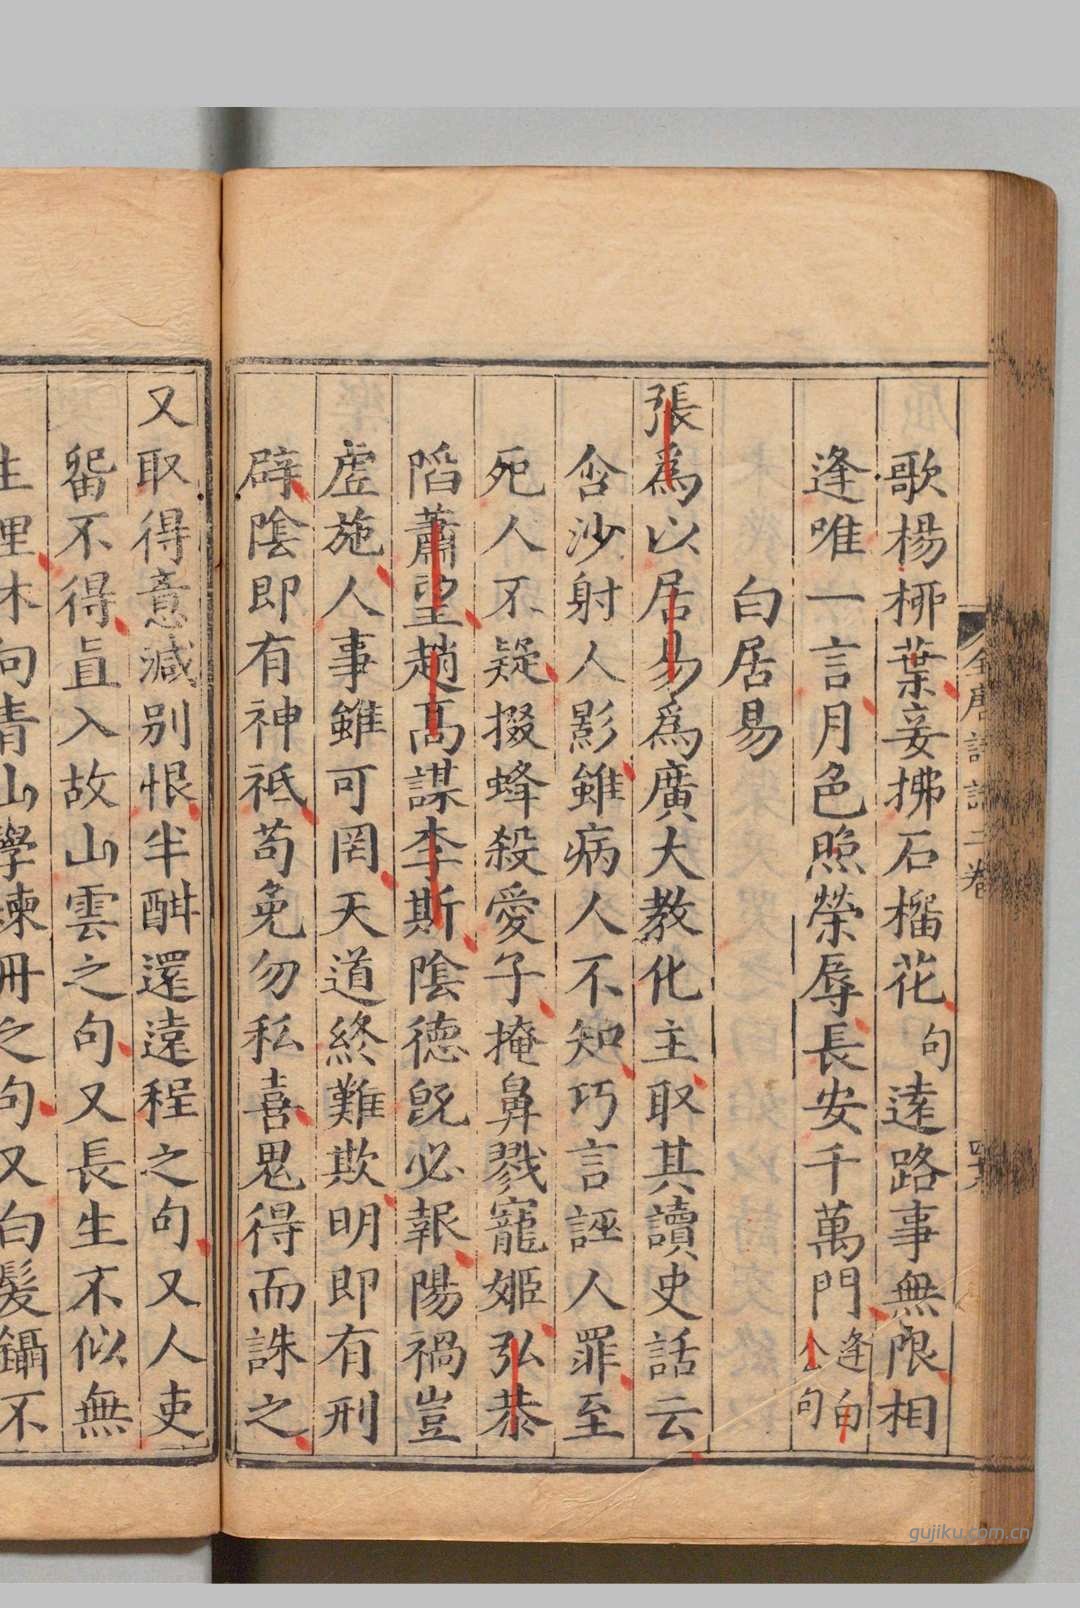 歌楊柳葉妾拂石榴花句遠路事無限相
逢唯一言月色照榮辱長安千萬門逢白
公句
白居易
張為以居易為廣大教化主取其讀史話云
含沙射人影雖病人不知巧言誣人罪至
死人不疑掇蜂殺愛子掩鼻戮寵姬弘恭
陷蕭望趙高謀李斯陰德旣必報陽禍豈
虛施人事雖可罔天道終難欺明即有刑
辟陰即有神祗苟免勿私喜鬼得而誅之
全唐詩話二卷
又取得意減別恨半酣還遠程之句又人吏
畱不得直入故山雲之句又長生不似無
生理休向青山學鍊丹之句又白髮鑷不
gujiku.com.cn